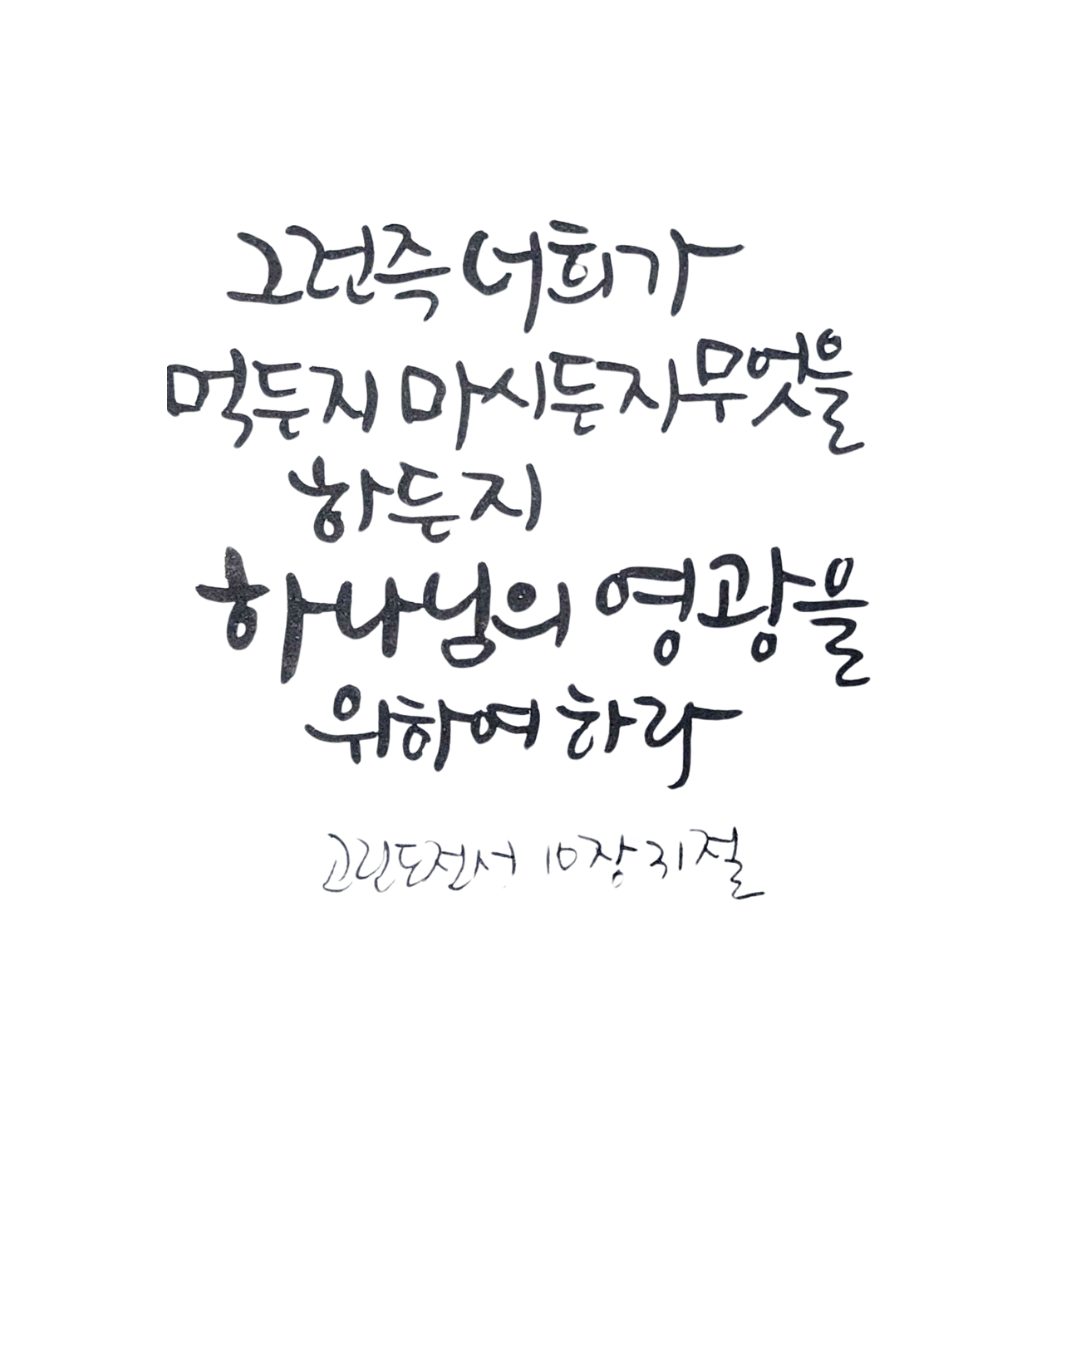 그런즉 너희가
먹든지 마시든지 무엇을
하든지
하나님의 영광을
위하여 하라
고린도전서 10장 31절